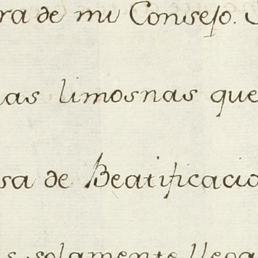 ra de mi Consejo.
as limosnas que
sa de Beatificacio
s solamente llega